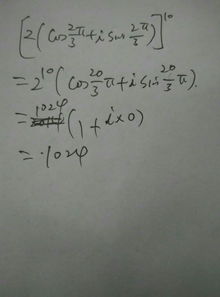 [2(cos 2/3 π + i sin 2/3 π)]^10
= 2^10 (cos 20/3 π + i sin 20/3 π).
= 1024 (1 + i×0)
= 1024